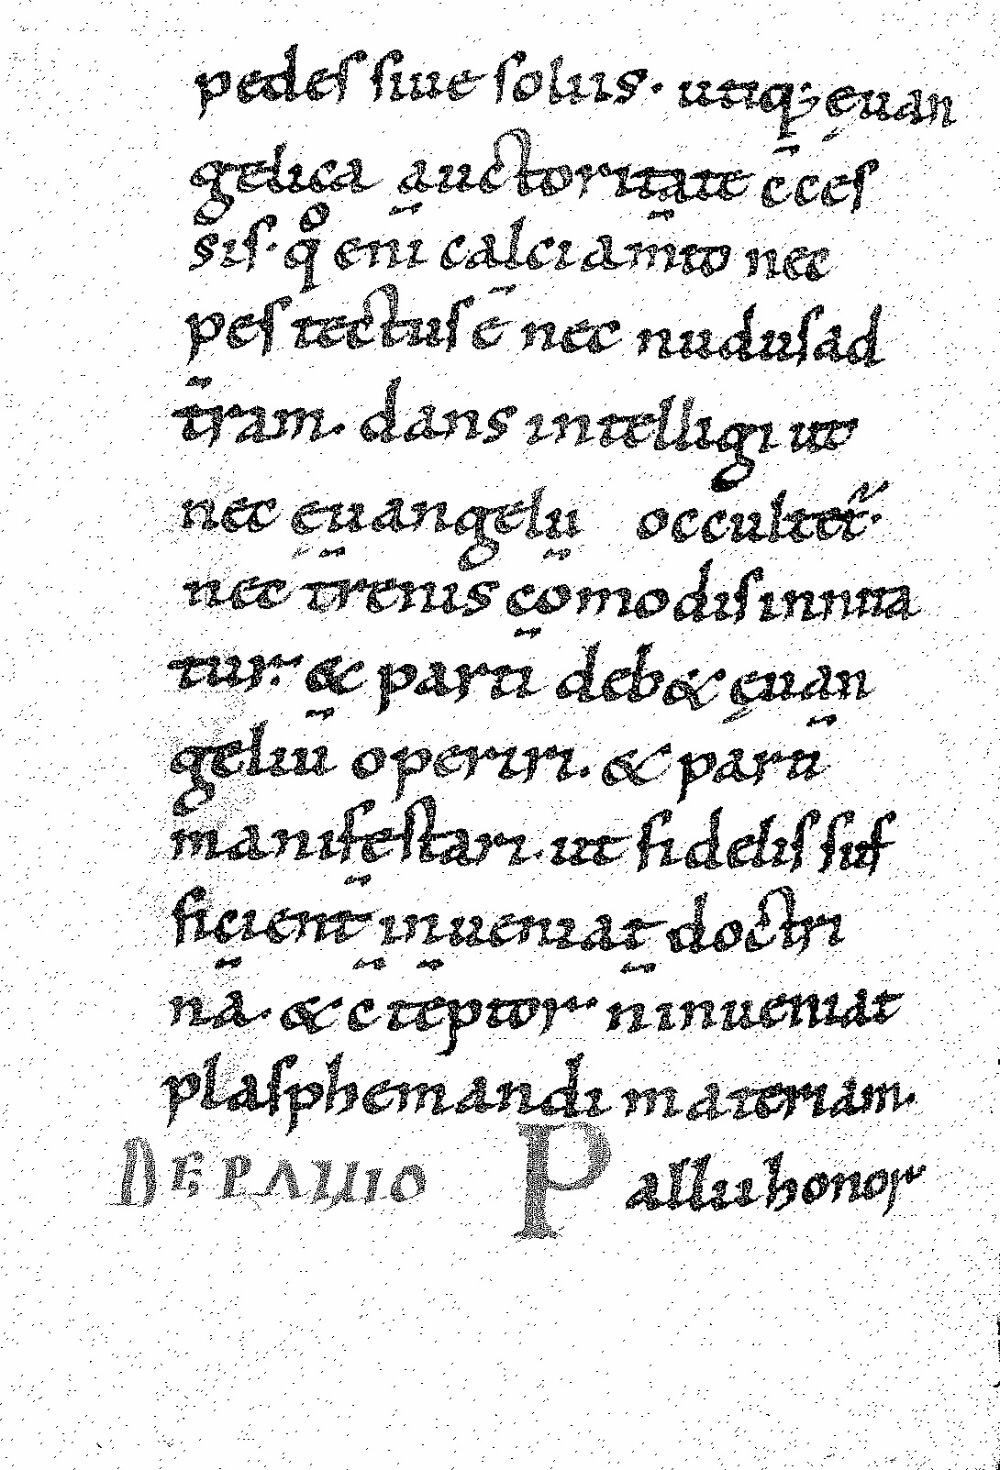 pedeſ ſiue ſoluis· utiq; ęuan
gelica auctoritate c̄ceſ
siſ· qͦ eni calciam̄to nec
peſ tectuſ ē nec nuduſ ad
t̄ram. dans intelligi ut
nec ęuangeliū occultet᷑·
nec t̄renis cōmodiſ innita
tur· & partī deb& ęuan
geliū operiri. & partī
manifeſtari. ut fidelis ſuf
ficient̄ inueniat doctri
nā. & c̄tēptor n̄ inueniat
plaſphemandi materiam.
DE PALLIO Pallii honor